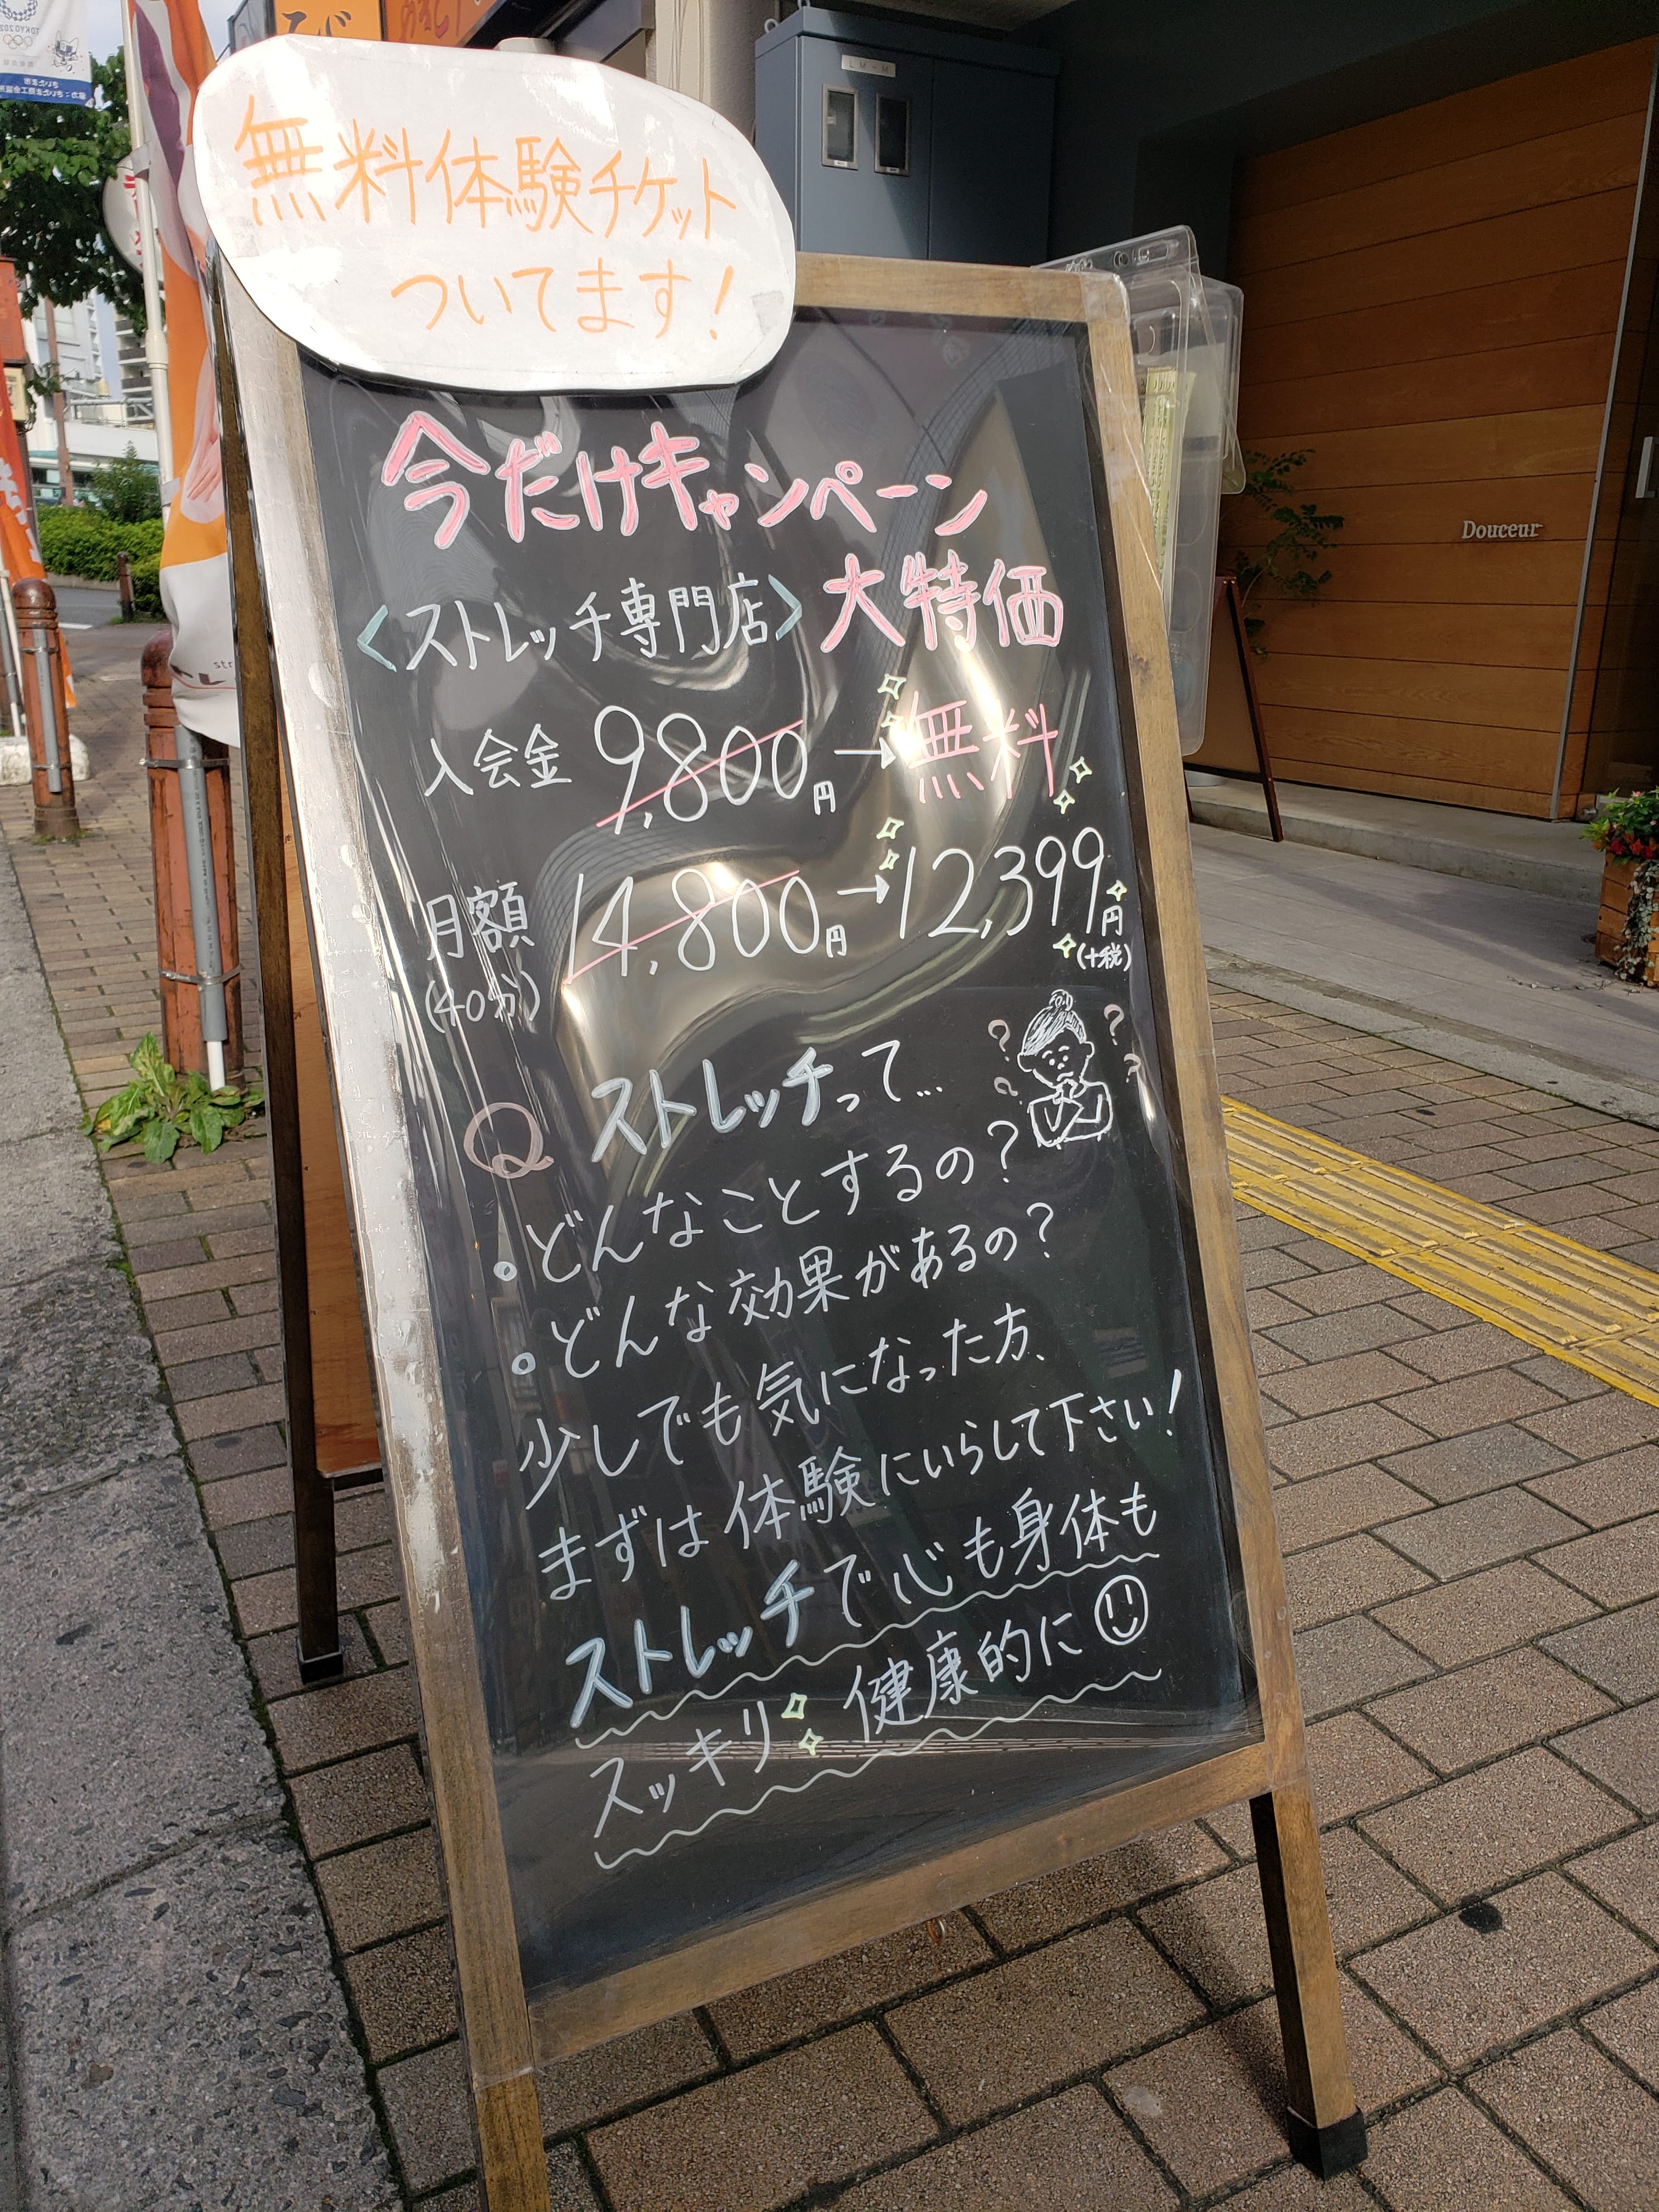 無料体験チケット
ついてます!
今だけキャンペーン
<ストレッチ専門店>大特価
入会金 9,800円→無料
月額 14,800円→12,399円
(40分)
(+税)
Q ストレッチって…
・どんなことするの?
・どんな効果があるの?
少しでも気になった方、
まずは体験にいらして下さい!
ストレッチで心も身体も
スッキリ 健康的に
Douceur
LM-M